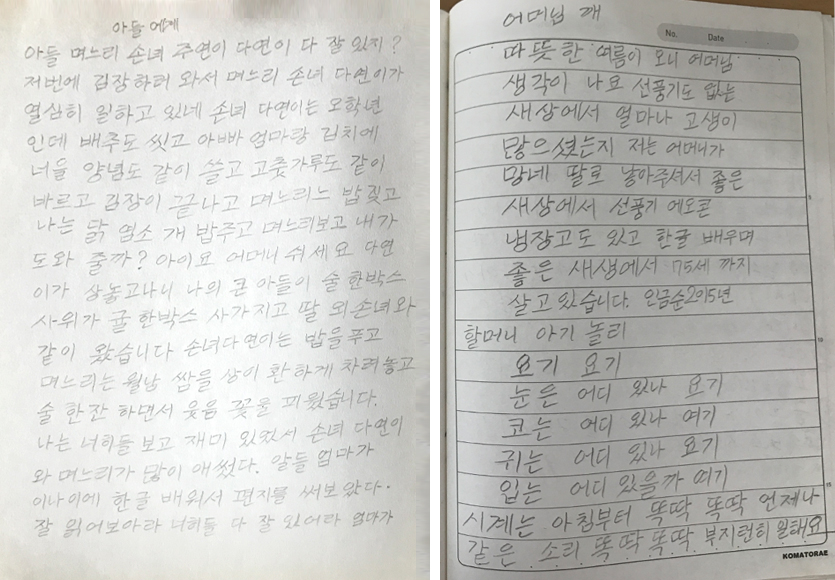 아들 에게
아들 며느리 손녀 주연이 다연이 다 잘 있지?
저번에 김장하러 와서 며느리 손녀 다연이가
열심히 일하고 있네 손녀 다연이는 오학년
인데 배추도 씻고 아빠 엄마랑 김치에
너을 양념도 같이 쓸고 고춧가루도 같이
바르고 김장이 끝나고 며느리느 밥짖고
나는 닭 염소 개 밥주고 며느리보고 내가
도와 줄까? 아이요 어머니 쉬세요 다연
이가 상놓고나니 나의 큰 아들이 술 한박스
사위가 굴 한박스 사가지고 딸 외손녀와
같이 왔습니다 손녀다연이는 밥을푸고
며느리는 월남 쌈을 상이 환하게 차려놓고
술 한잔 하면서 웃음 꽃을 피웠습니다.
나는 너희들 보고 재미 있었서 손녀 다연이
와 며느리가 많이 애썼다. 알들 엄마가
이나이에 한글 배워서 편지를 써보았다.
잘 읽어보아라 너희들 다 잘 있어라 엄마가
어머님 께
No. Date
따뜻한 여름이 오니 어머님
생각이 나요 선풍기도 없는
새상에서 얼마나 고생이
많으셨는지 저는 어머니가
망네 딸로 낳아주셔서 좋은
새상에서 선풍기 에오콘
냉장고도 있고 한글 배우며
좋은 새생에서 75세 까지
살고 있습니다. 인금순2015년
할머니 아기 놀리
요기 요기
눈은 어디 있나 요기
코는 어디 있나 여기
귀는 어디 있나 요기
입는 어디 있을까 여기
시계는 아침부터 똑딱 똑딱 언제나
같은 소리 똑딱 똑딱 부지런히 일해요
KOMATORAE